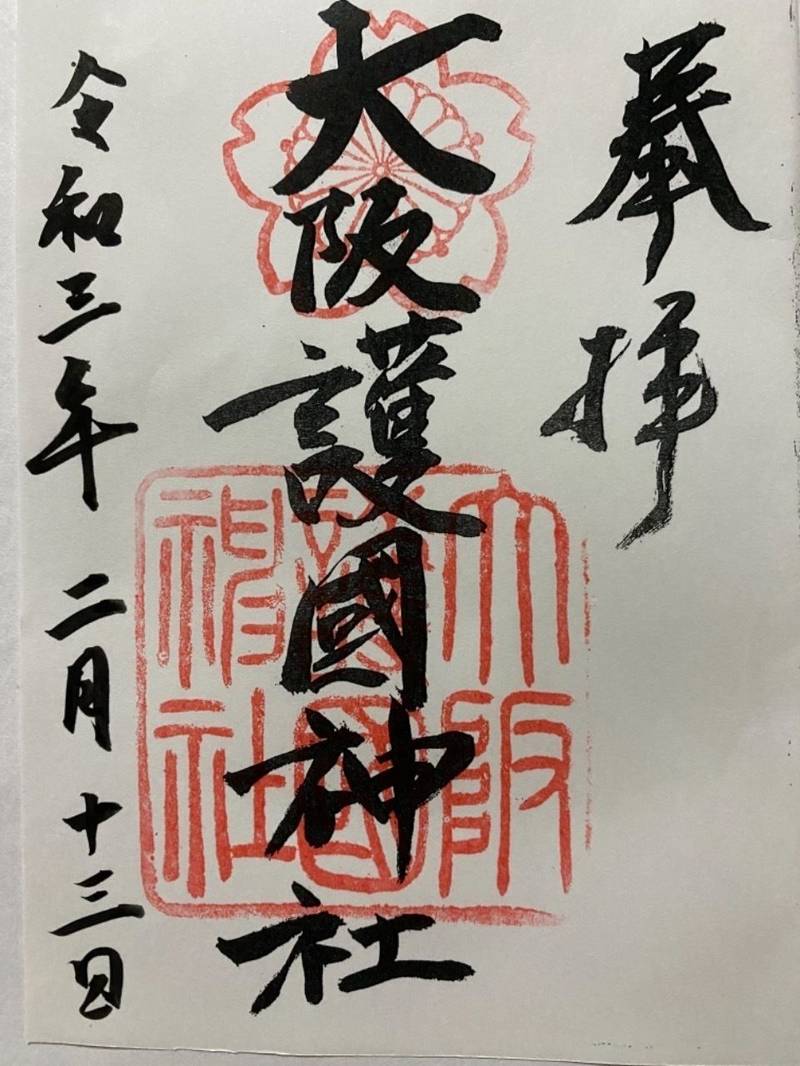 奉拝
大阪護國神社
大阪護國神社
令和三年二月十三日